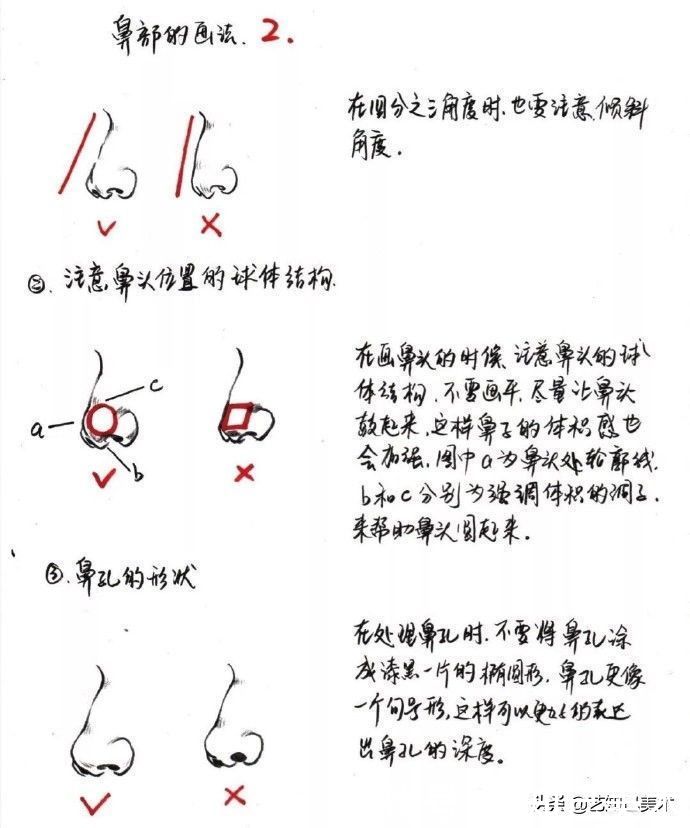 鼻部的画法. 2.
在四分之三角度时.也要注意.倾斜
角度.
②.注意鼻头位置的球体结构.
在画鼻头的时候.注意鼻头的球
体结构.不要画平.尽量让鼻头
鼓起来.这样鼻子的体积感也
会加强.图中a为鼻头处轮廓线.
b和c分别为强调体积的调子.
来帮助鼻头圆起来.
a
c
b
③.鼻孔的形状
在处理鼻孔时.不要将鼻孔涂
成漆黑一片的椭圆形.鼻孔更像
一个句号形,这样可以更好的表达
出鼻孔的深度。
头条@艺知己美术